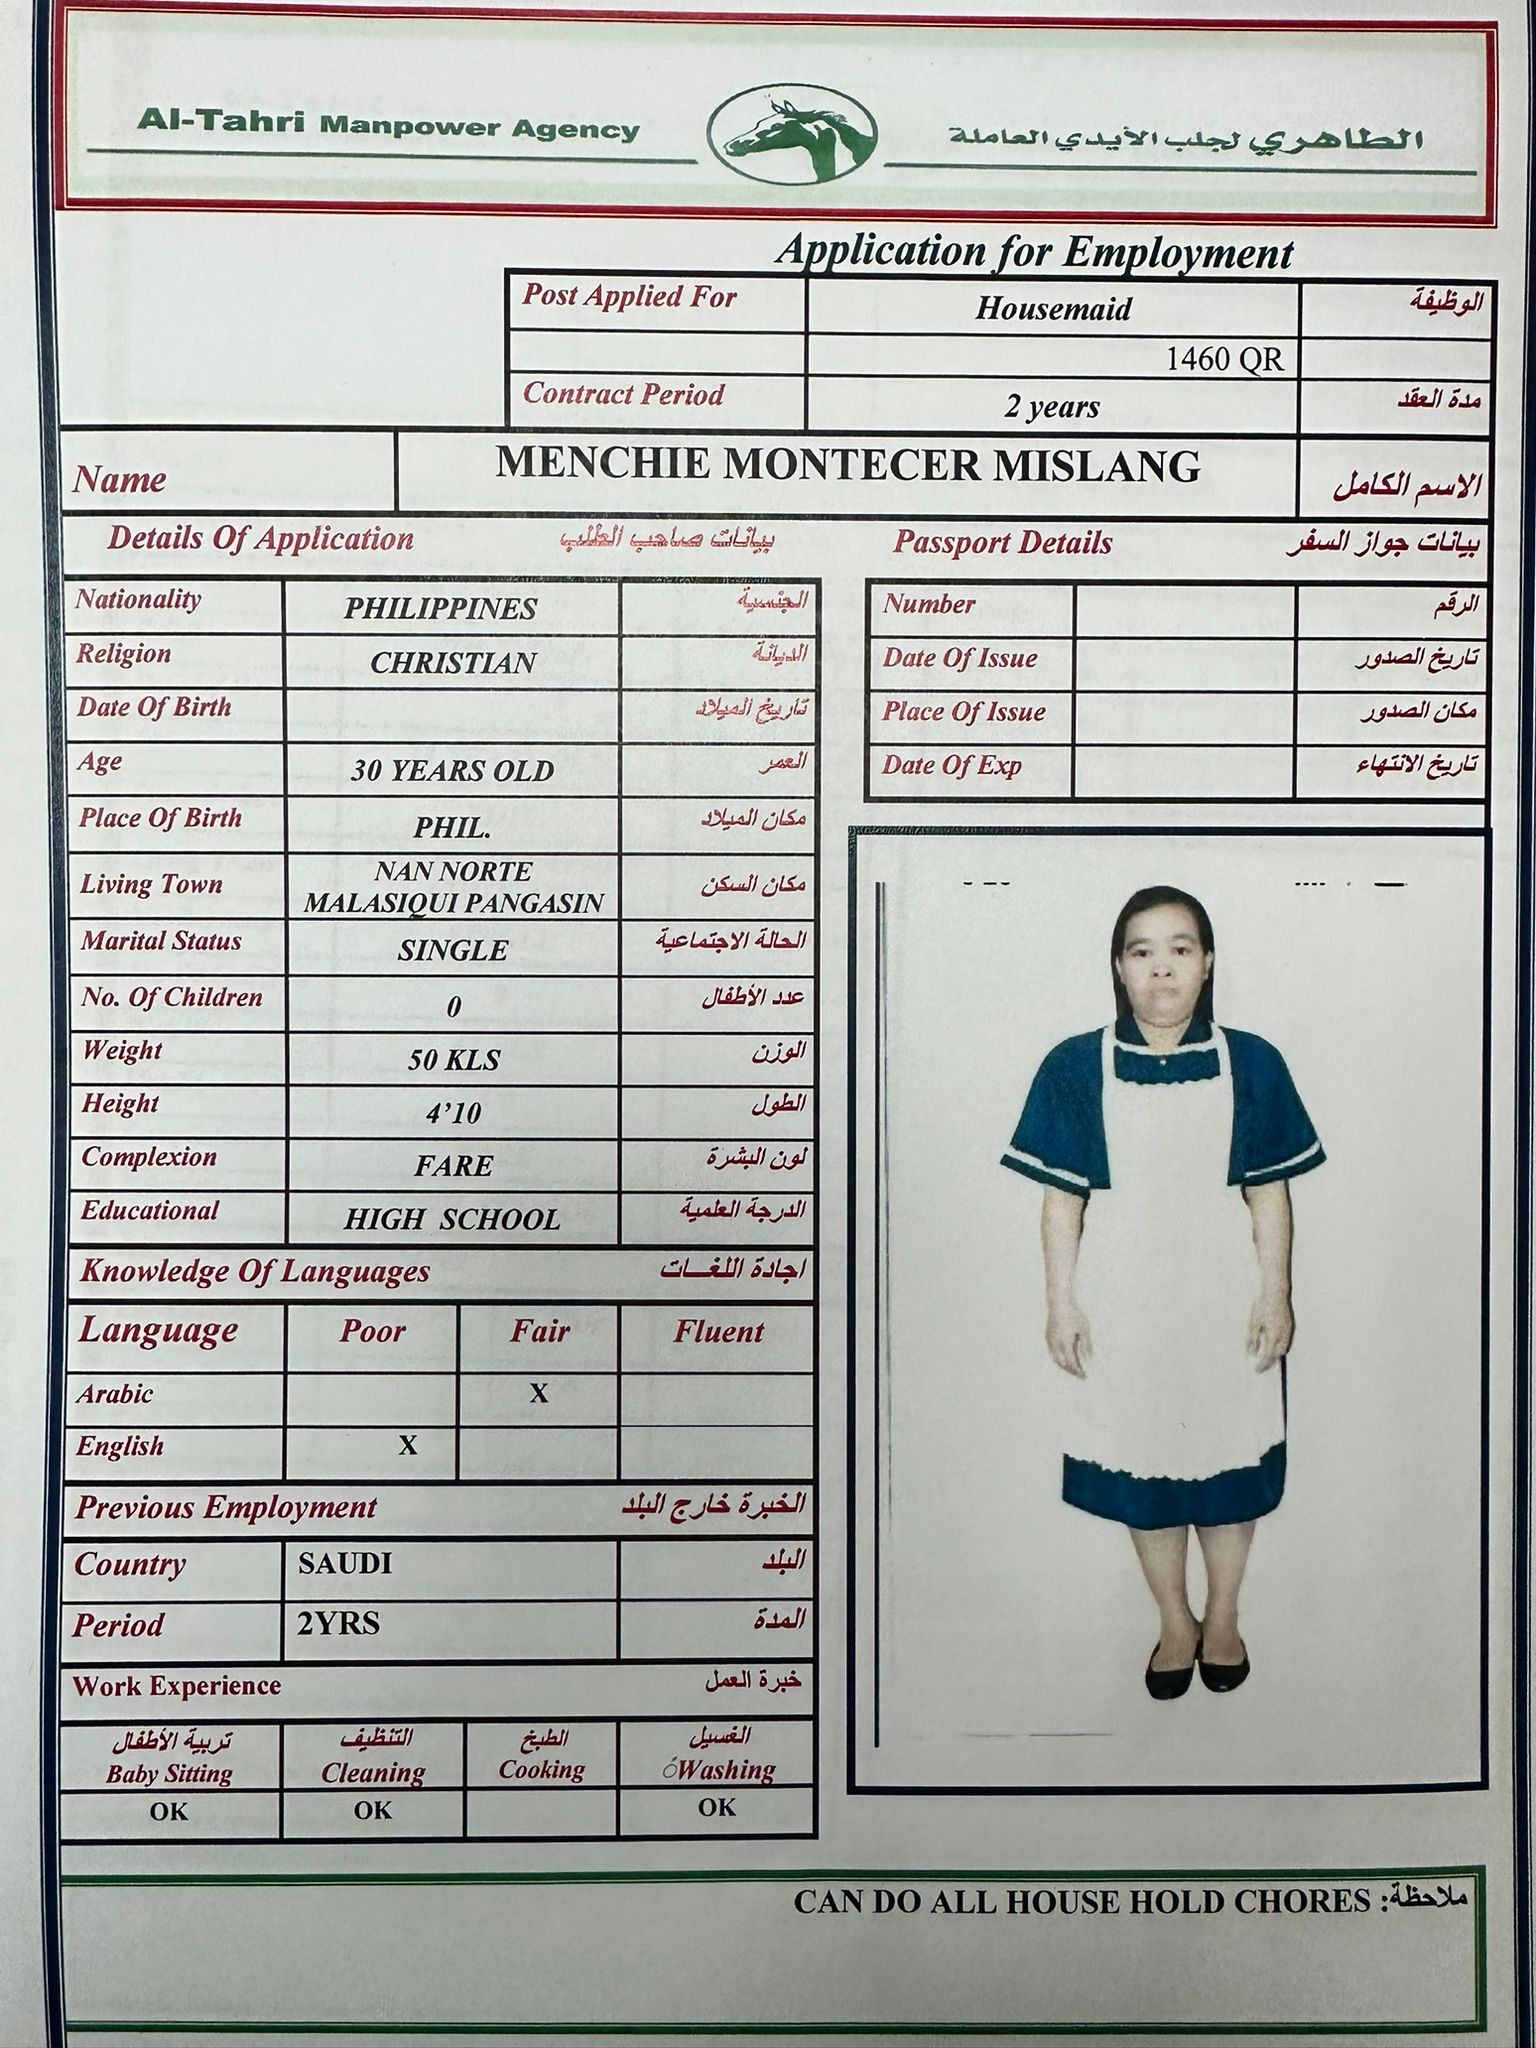 Al-Tahri Manpower Agency
الطاهري لجلب الأيدي العاملة
Application for Employment
Post Applied For Housemaid الوظيفة
1460 QR
Contract Period 2 years مدة العقد
Name MENCHIE MONTECER MISLANG الاسم الكامل
Details Of Application بيانات صاحب الطلب
Nationality PHILIPPINES الجنسية
Religion CHRISTIAN الديانة
Date Of Birth تاريخ الميلاد
Age 30 YEARS OLD العمر
Place Of Birth PHIL. مكان الميلاد
Living Town NAN NORTE مكان السكن
MALASIQUI PANGASIN
Marital Status SINGLE الحالة الاجتماعية
No. Of Children 0 عدد الأطفال
Weight 50 KLS الوزن
Height 4’10 الطول
Complexion FARE لون البشرة
Educational HIGH SCHOOL الدرجة العلمية
Knowledge Of Languages اجادة اللغـــات
Language Poor Fair Fluent
Arabic X
English X
Previous Employment الخبرة خارج البلد
Country SAUDI البلد
Period 2YRS المدة
Work Experience خبرة العمل
تربية الأطفال التنظيف الطبخ الغسيل
Baby Sitting Cleaning Cooking ُWashing
OK OK OK
Passport Details بيانات جواز السفر
Number الرقم
Date Of Issue تاريخ الصدور
Place Of Issue مكان الصدور
Date Of Exp تاريخ الانتهاء
ملاحظة: CAN DO ALL HOUSE HOLD CHORES